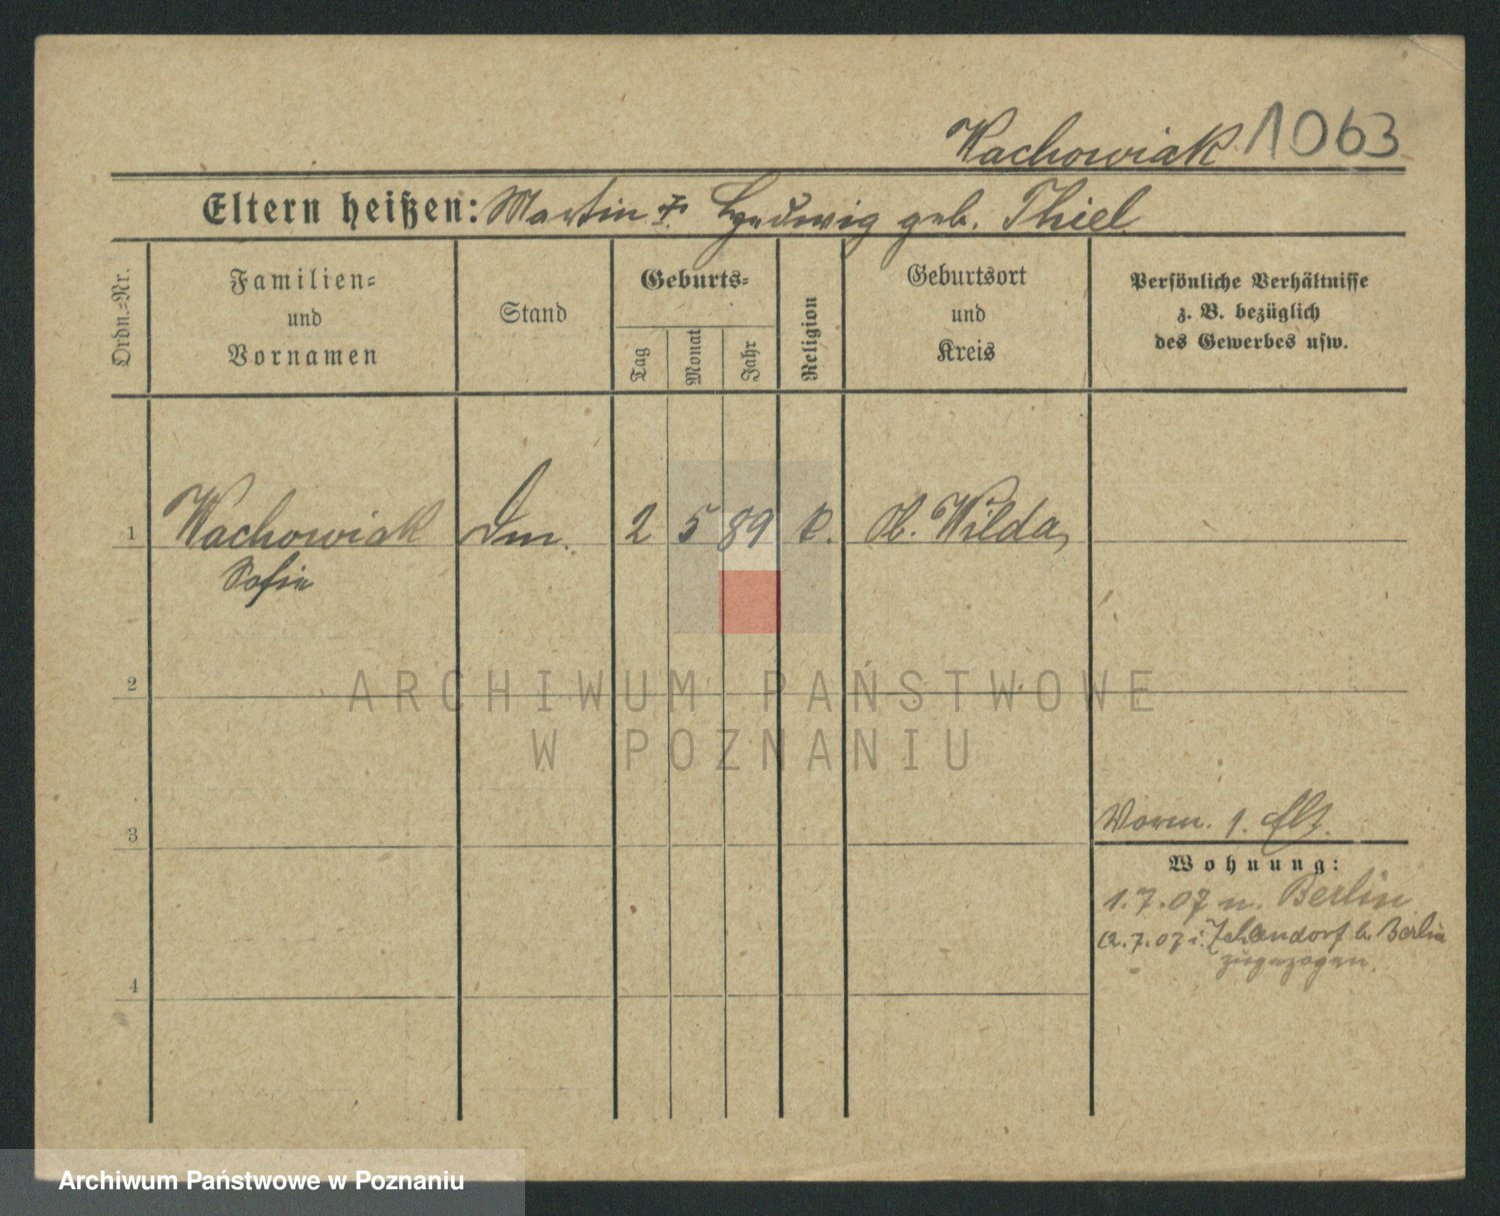 Wachowiak 1063
Eltern heißen: Martin u. Hedwig geb. Thiel
Ordn.-Nr.
Familien-
und
Vornamen
Stand
Geburts-
Tag
Monat
Jahr
Religion
Geburtsort
und
Kreis
Persönliche Verhältnisse
z. B. bezüglich
des Gewerbes usw.
1 Wachowiak 2 5 89 k. Ob. Wilda
Sofie
2
ARCHIWUM PAŃSTWOWE
W POZNANIU
3
Vorm. 1.
Wohnung:
1.7.07 n. Berlin
12.7.07 i. Zehlendorf b. Berlin
zugezogen.
4
Archiwum Państwowe w Poznaniu